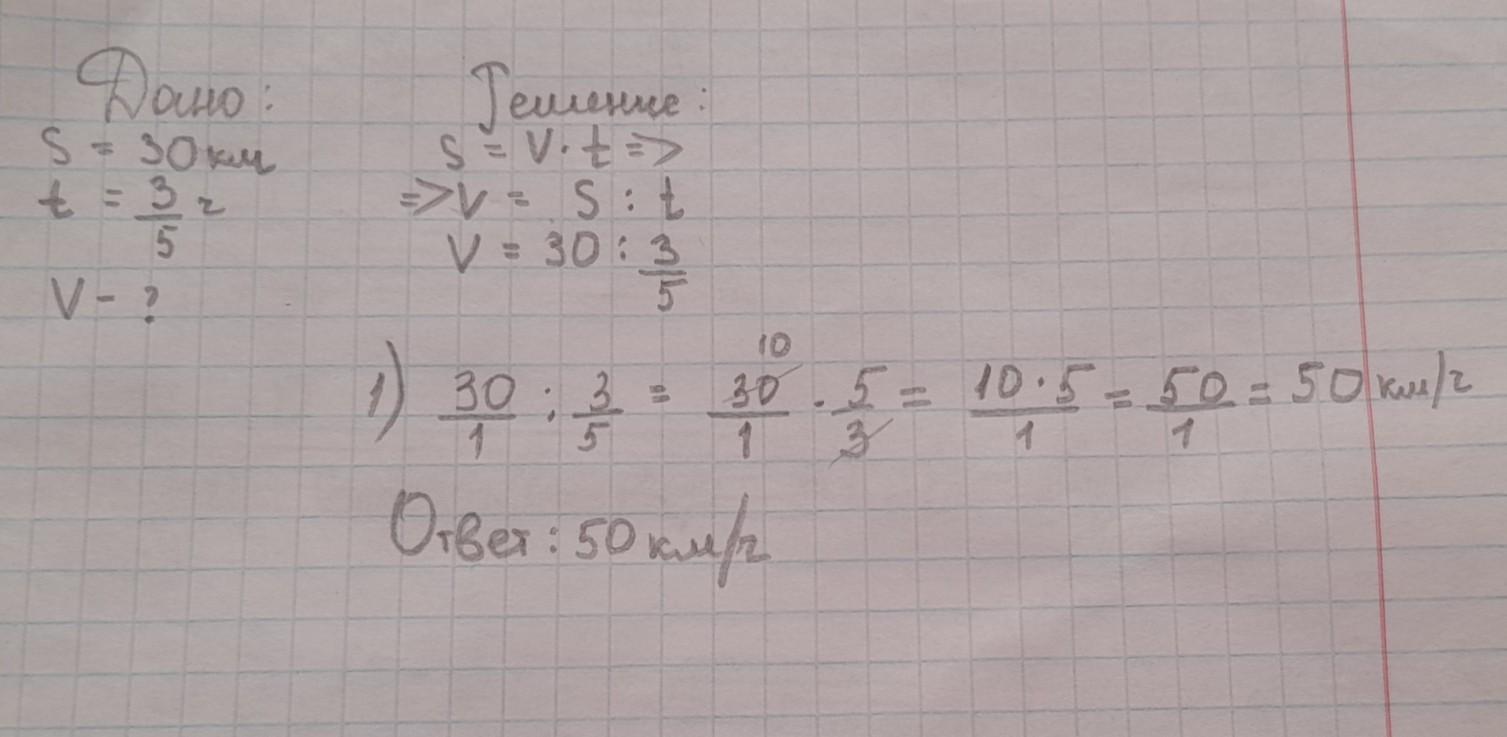 Дано:
S = 30 км
t = 3/5 ч
V - ?
Решение:
S = V · t =>
=> V = S : t
V = 30 : 3/5
1) 30/1 : 3/5 = 30/1 · 5/3 = 10·5/1 = 50/1 = 50 км/ч
10
Ответ: 50 км/ч